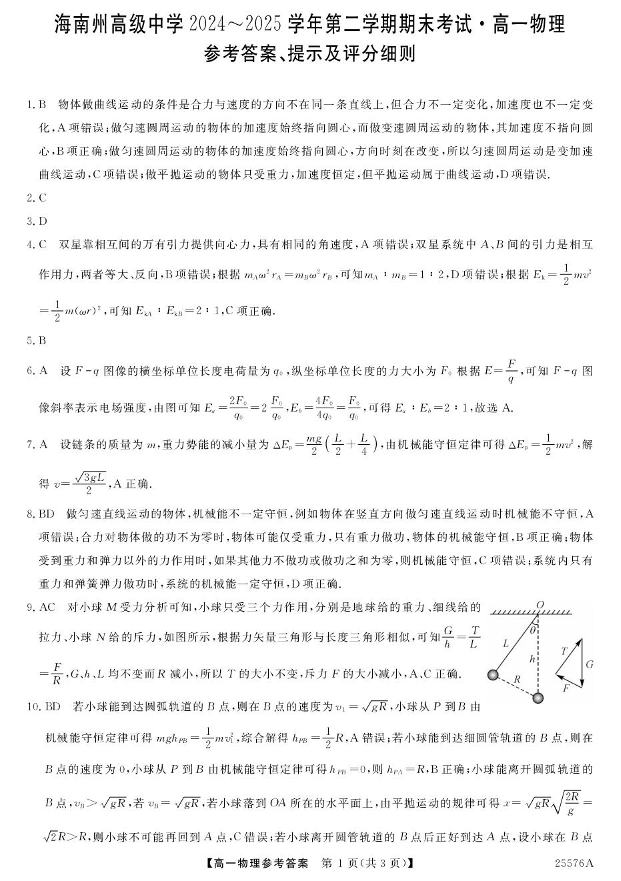 海南州高级中学 2024～2025 学年第二学期期末考试·高一物理
参考答案、提示及评分细则
1. B 物体做曲线运动的条件是合力与速度的方向不在同一条直线上,但合力不一定变化,加速度也不一定变
化,A项错误;做匀速圆周运动的物体的加速度始终指向圆心,而做变速圆周运动的物体,其加速度不指向圆
心,B项正确;做匀速圆周运动的物体的加速度始终指向圆心,方向时刻在改变,所以匀速圆周运动是变加速
曲线运动,C项错误;做平抛运动的物体只受重力,加速度恒定,但平抛运动属于曲线运动,D项错误.
2. C
3. D
4. C 双星靠相互间的万有引力提供向心力,具有相同的角速度,A项错误;双星系统中 A、B 间的引力是相互
作用力,两者等大、反向,B项错误;根据 m_Aω²r_A=m_Bω²r_B,可知m_A：m_B=1：2,D项错误;根据 E_k=1/2 mv²
=1/2 m(ωr)²,可知 E_kA：E_kB=2：1,C项正确.
5. B
6. A 设 F-q 图像的横坐标单位长度电荷量为 q₀,纵坐标单位长度的力大小为 F₀ 根据 E=F/q,可知 F-q 图
像斜率表示电场强度,由图可知 E_a=2F₀/q₀=2 F₀/q₀,E_b=4F₀/4q₀=F₀/q₀,可得 E_a：E_b=2：1,故选 A.
7. A 设链条的质量为 m,重力势能的减小量为 △E_p=mg/2(L/2+L/4),由机械能守恒定律可得 △E_p=1/2 mv²,解
得 v=√3gL/2,A正确.
8. BD 做匀速直线运动的物体,机械能不一定守恒,例如物体在竖直方向做匀速直线运动时机械能不守恒,A
项错误;合力对物体做的功不为零时,物体可能仅受重力,只有重力做功,物体的机械能守恒,B项正确;物体
受到重力和弹力以外的力作用时,如果其他力不做功或做功之和为零,则机械能守恒,C项错误;系统内只有
重力和弹簧弹力做功时,系统的机械能一定守恒,D项正确.
9. AC 对小球 M 受力分析可知,小球只受三个力作用,分别是地球给的重力、细线给的
拉力、小球 N 给的斥力,如图所示,根据力矢量三角形与长度三角形相似,可知G/h=T/L
=F/R,G、h、L 均不变而R 减小,所以 T 的大小不变,斥力 F 的大小减小,A、C正确.
O
θ
L
h
R
T
G
F
10. BD 若小球能到达圆弧轨道的 B 点,则在 B 点的速度为 v₁=√gR,小球从 P 到 B 由
机械能守恒定律可得 mgh_PB=1/2 mv₁²,综合解得 h_PB=1/2 R,A错误;若小球能到达细圆管轨道的 B 点,则在
B 点的速度为 0,小球从 P 到 B 由机械能守恒定律可得h_PB=0,则 h_PA=R,B正确;小球能离开圆弧轨道的
B 点,v_B>√gR,若 v_B=√gR,若小球落到 OA 所在的水平面上,由平抛运动的规律可得 x=√gR √2R/g=
√2R>R,则小球不可能再回到 A 点,C错误;若小球离开圆管轨道的 B 点后正好到达 A 点,设小球在 B 点
【高一物理参考答案 第 1 页(共 3 页)】
25576A